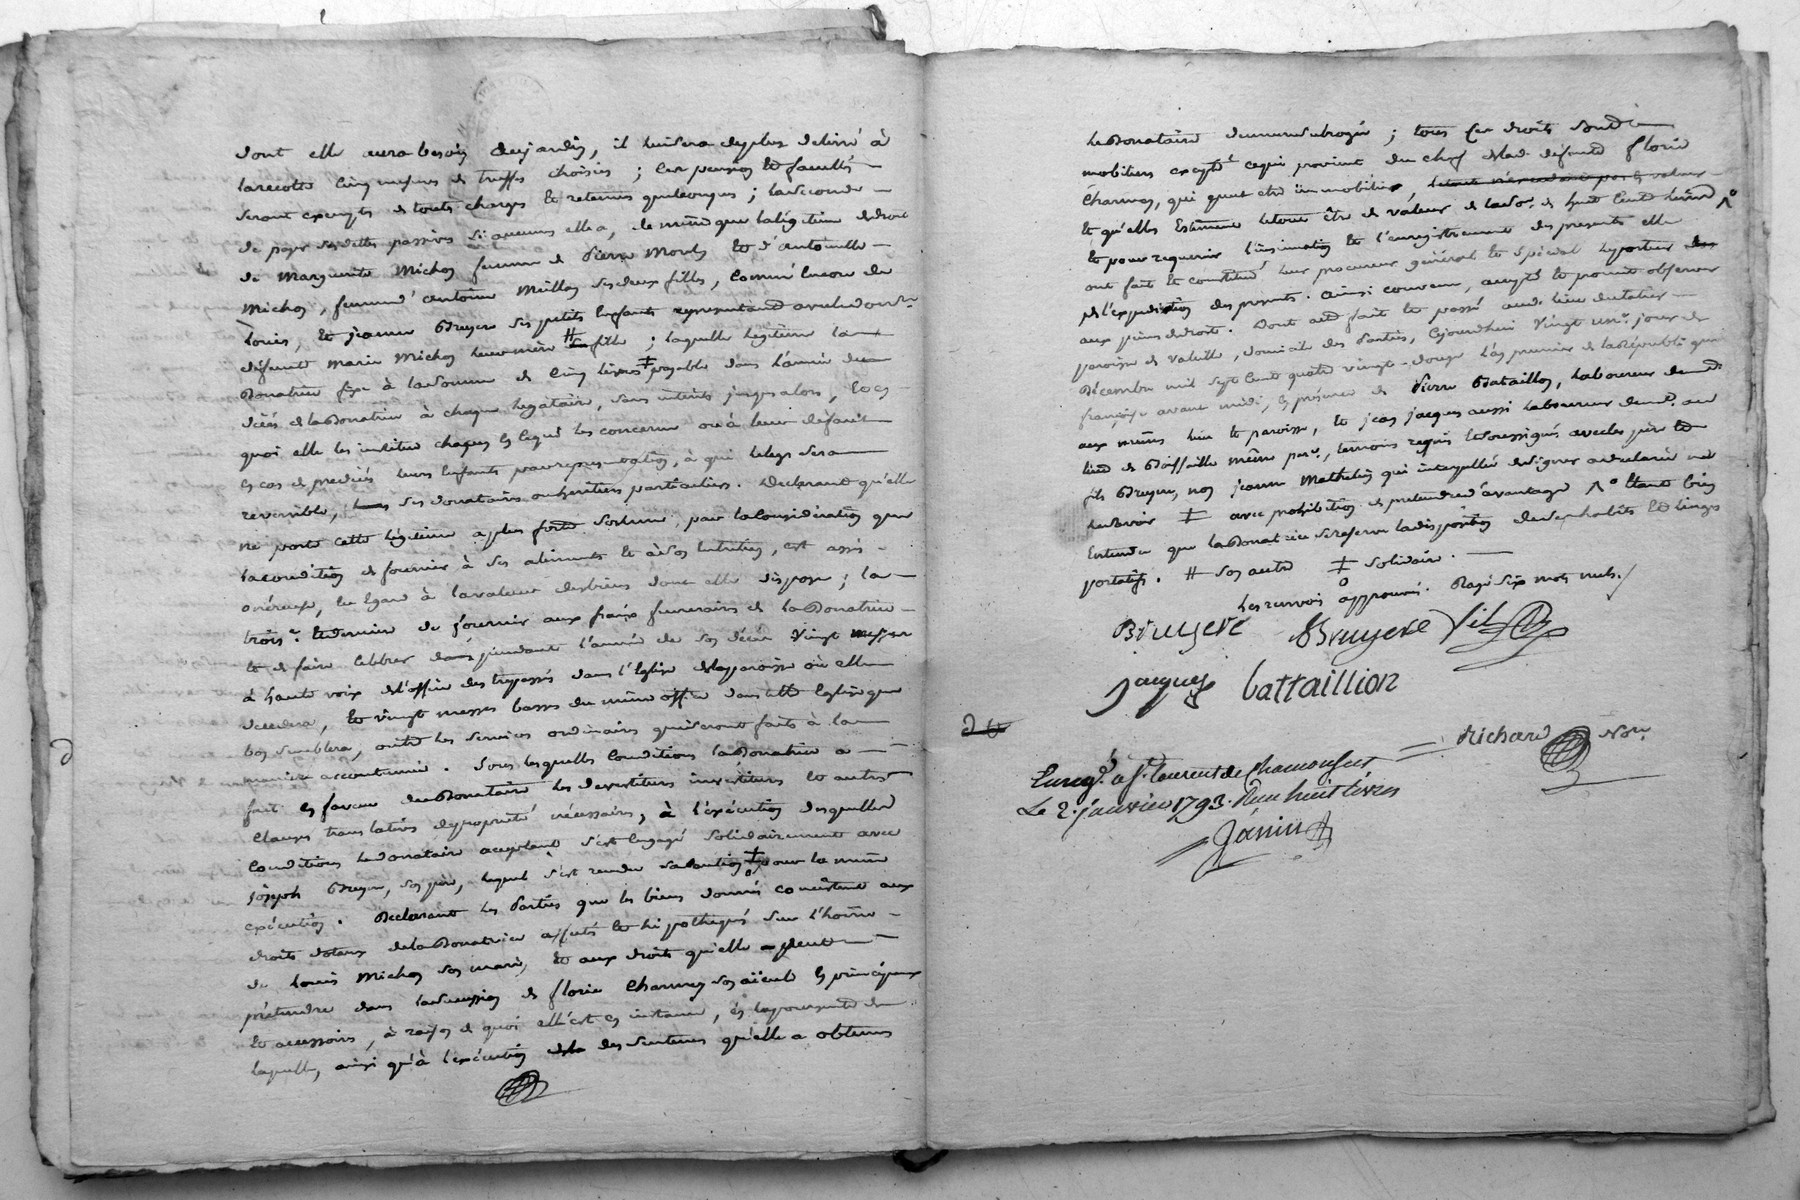 dont elle aura besoin au jardin, il lui sera de plus delivré à
la recolte cinq mesures de truffes choisies ; les pension et facultés
seront exempts de touts charges et retenues quelconques ; la seconde
de payer ses dettes passives si aucunes elle a, de même que la légitime de droit
de Marguerite Michon femme de Pierre et d'antoinette
Michon, femme d'antoine ses deux filles, comme encore de
Louis, et jeanne Bruyere ses petits enfants representant
défunte Marie Michon leur mère # fille ; laquelle légitime la
Donatrice fixe à la somme de cinq livres ‡ payable dans l'année du
décés de la Donatrice à chaque legataire, sans interets jusqu'alors, en
quoi elle les institue chacun en ce qui les concerne ou à leur defaut
en cas de predécés leurs enfants par representation, à qui le legs sera
reversible, ses donataires ou heritiers particuliers. Declarant qu'elle
ne porte cette légitime a plus forte somme, par la considération que
la condition de fournir à ses aliments et à son entretien, est assés
onéreuse, eu egard à la valeur des biens dont elle dispose ; la
trois.e et derniere de fournir aux fraix funeraires de la Donatrice
et de faire célébrer pendant l'année de son décès vingt messes
à haute voix de l'office des trepassés dans l'Eglise de la paroisse où elle
decedera, et vingt messes basses du même office dans telle Eglise que
bon semblera, outre les services ordinaires qui seront faits à la
maniere accoutumée. Sous lesquelles conditions la Donatrice a
fait en faveur du Donataire les devestitures investitures et autres
clauses translatives de proprieté nécessaires, à l'exécution desquelles
conditions le donataire acceptant s'est engagé solidairement avec
joseph Bruyere, son père, lequel s'est rendu sa caution ‡ pour la même
exécution. Declarant les Parties que les biens donnés consistent aux
droits dotaux de la Donatrice assurés et hipothequés sur l'hoirie
de Louis Michon son mari, et aux droits qu'elle a peut
prétendre dans la succession de florie Charmey son aïeule en principaux
et accessoires, à raison de quoi elle est en instance, en la poursuite de
laquelle, ainsi qu'à l'exécution des sentences qu'elle a obtenues
le Donataire demeure subrogé ; tous ces droits sont
mobiliers excepté ce qui provient du chef de lad. défunte florie
Charmey, qui peut etre immobilier, valeur
et qu'elles Estiment le tout être de valeur de la so. de huit cent livres
et pour requerir l'insinuation et l'enregistrement des presents elle
ont fait et constitué leur procureur général et spécial le porteur
de l'expedition des presents. Ainsi convenu, accepté et promis observer
aux peines de droit. Dont acte fait et passé aud. lieu
paroisse de Valeille, domicile des Parties, cejourdhui vingt un.e jour de
Décembre mil sept cent quatre vingt-douze l'an premier de la République
française avant midi, en présence de Pierre Bataillon, laboureur
aux mêmes lieu et paroisse, et jean jacques aussi laboureur
lieu de Boissaille même par.e, temoins requis et soussignés avec les père et
fils Bruyere, non jeanne Mathelin qui interpellée de signer a declaré ne
le savoir ‡ avec prohibition de pretendre d'avantage étant bien
Entendu que la Donatrice se reserve la disposition de ses habits et linges
portatifs. # son autre ‡ solidaire.
Les renvois approuvés. Rayé six mots nuls.
Bruyere Bruyere fils
jacques battaillion
Richard Nore
Enreg.é a St. Laurent de Chamousset
Le 2. janvier 1793. Recu huit livres
Janin